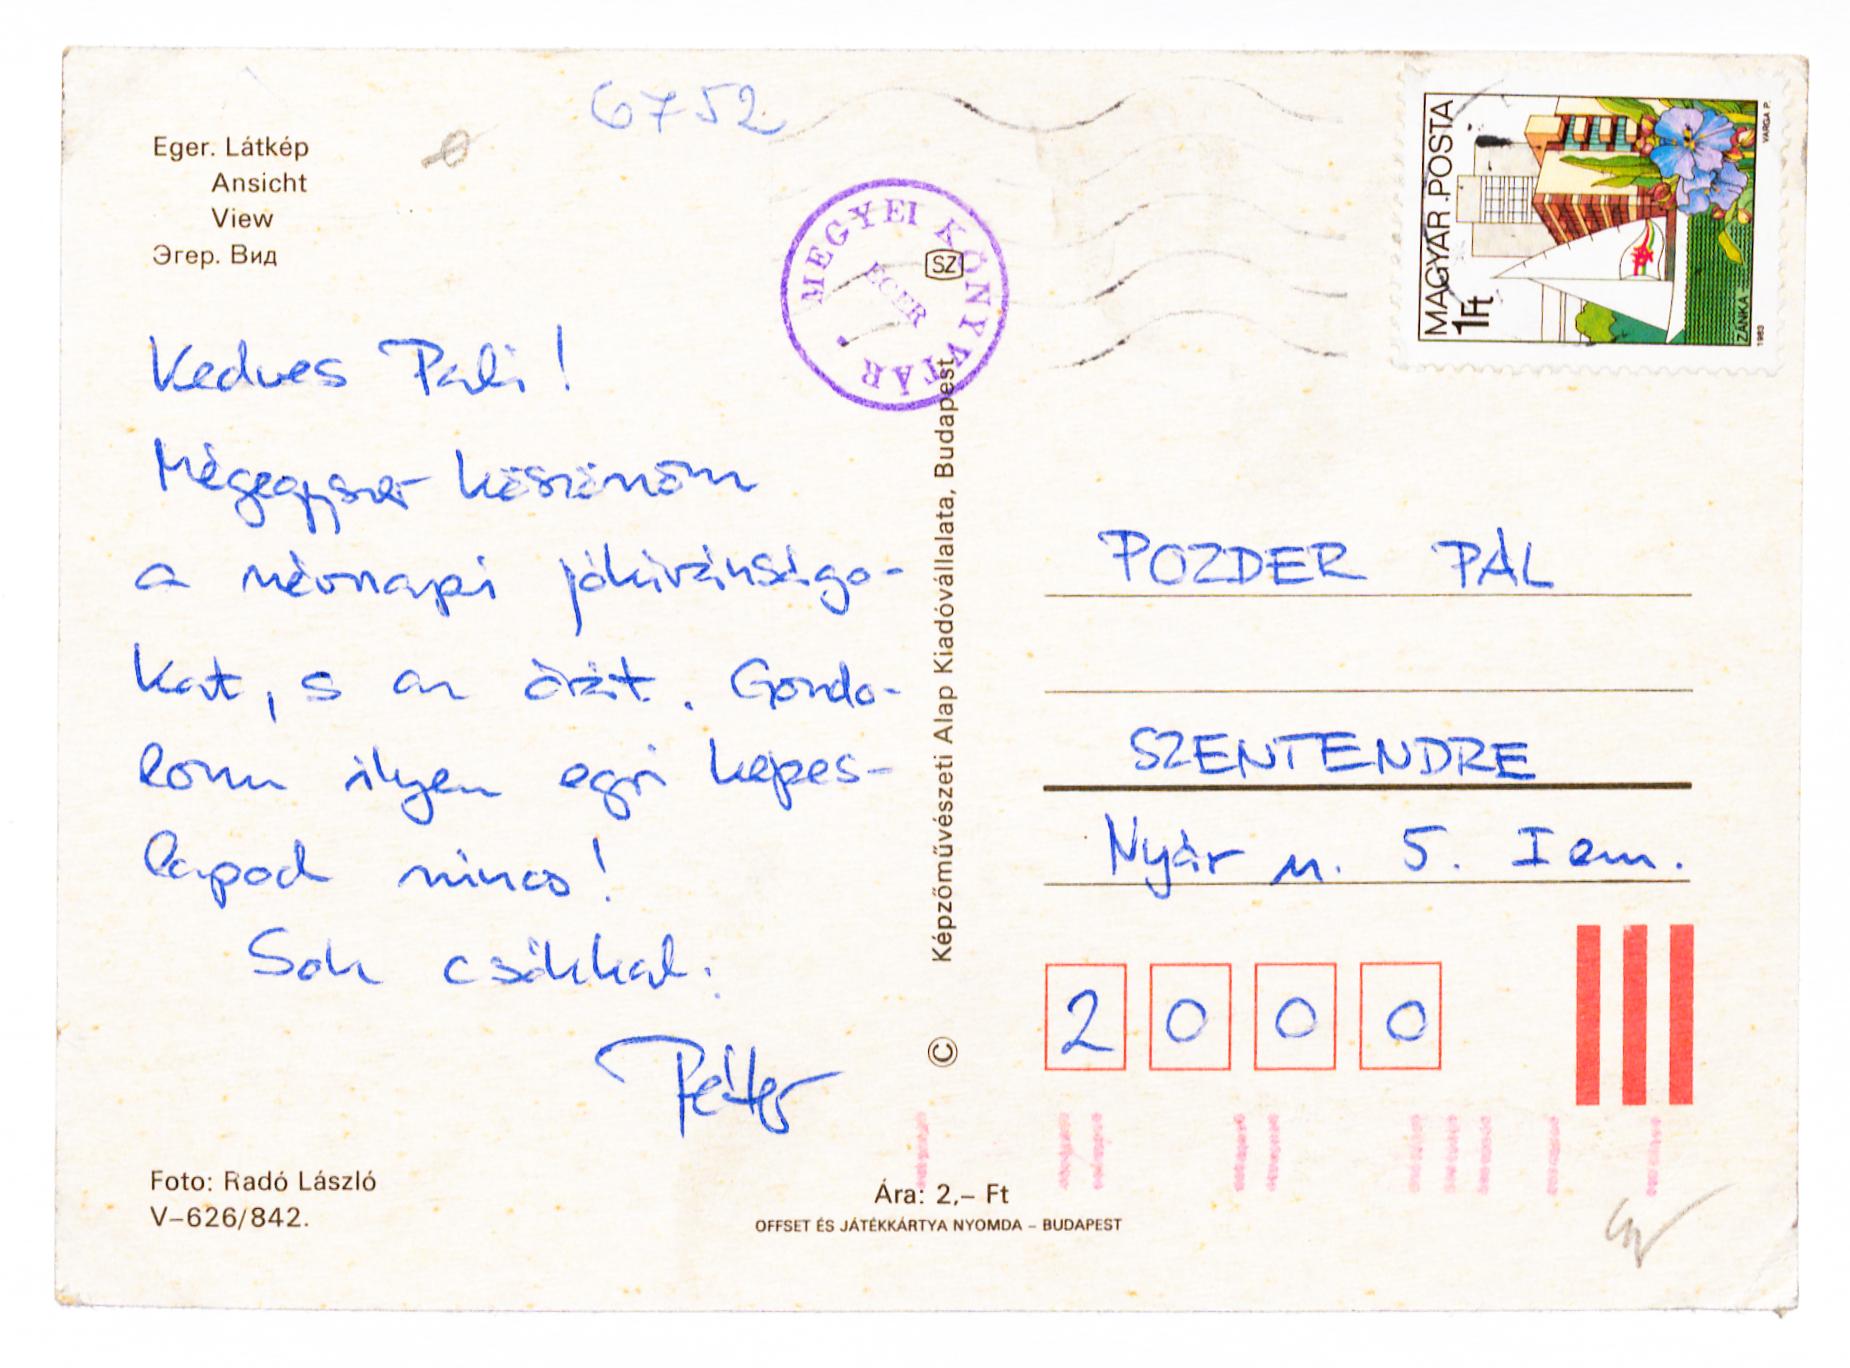 6752
Eger. Látkép
Ansicht
View
Эгер. Вид
MEGYEI KÖNYVTÁR
EGER
SZ
MAGYAR POSTA
1Ft
ZÁNKA
1983
VARGA P.
Kedves Pali!
Mégegyszer köszönöm
a névnapi jókivánságo-
kat, s az órát. Gondo-
lom ilyen egri képes-
lapod nincs!
Sok csókkal:
Péter
Foto: Radó László
V–626/842.
Képzőművészeti Alap Kiadóvállalata, Budapest
©
Ára: 2,– Ft
OFFSET ÉS JÁTÉKKÁRTYA NYOMDA – BUDAPEST
POZDER PÁL
SZENTENDRE
Nyár u. 5. I em.
2000